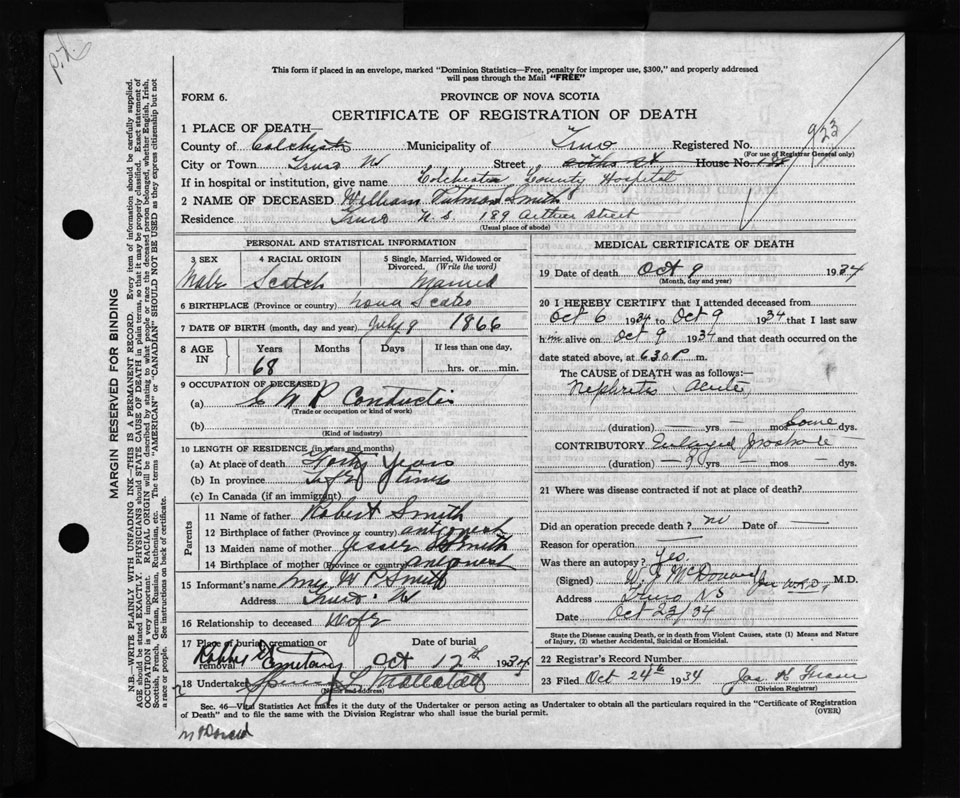 This form if placed in an envelope, marked "Dominion Statistics—Free, penalty for improper use, $300," and properly addressed
will pass through the Mail "FREE"
FORM 6.
PROVINCE OF NOVA SCOTIA
CERTIFICATE OF REGISTRATION OF DEATH
923
1 PLACE OF DEATH—
County of Colchester Municipality of Truro Registered No.
(For use of Registrar General only)
City or Town Truro NS Street House No.
If in hospital or institution, give name Colchester County Hospital
2 NAME OF DECEASED William Putman Smith
Residence Truro N.S. 189 Arthur Street
(Usual place of abode)
PERSONAL AND STATISTICAL INFORMATION
3 SEX 4 RACIAL ORIGIN 5 Single, Married, Widowed or
Divorced. (Write the word)
Male Scotch Married
6 BIRTHPLACE (Province or country) Nova Scotia
7 DATE OF BIRTH (month, day and year) July 8 1866
8 AGE IN Years Months Days If less than one day,
68 hrs. or min.
9 OCCUPATION OF DECEASED
(a) C N R Conductor
(Trade or occupation or kind of work)
(b)
(Kind of industry)
10 LENGTH OF RESIDENCE (in years and months)
(a) At place of death Forty Years
(b) In province Life Time
(c) In Canada (if an immigrant)
Parents
11 Name of father Robert Smith
12 Birthplace of father (Province or country)
13 Maiden name of mother Smith
14 Birthplace of mother (Province or country)
15 Informant's name Mrs W P Smith
Address Truro NS
16 Relationship to deceased Wife
17 Place of burial, cremation or
removal Cemetery
Date of burial
Oct 12th 1934
18 Undertaker
(Name and address)
MEDICAL CERTIFICATE OF DEATH
19 Date of death Oct 9 1934
(Month, day and year)
20 I HEREBY CERTIFY that I attended deceased from
Oct 6 1934 to Oct 9 1934 that I last saw
him alive on Oct 9 1934 and that death occurred on the
date stated above, at 6 30 P m.
The CAUSE of DEATH was as follows:
Nephritis Acute
(duration) — yrs — mos Some dys.
CONTRIBUTORY Enlarged Prostate
(duration) — ? yrs — mos — dys.
21 Where was disease contracted if not at place of death?
Did an operation precede death? no Date of —
Reason for operation
Was there an autopsy? Yes
(Signed) McDonald M.D.
Address Truro NS
Date Oct 23/34
State the Disease causing Death, or in death from Violent Causes, state (1) Means and Nature
of Injury, (2) whether Accidental, Suicidal or Homicidal.
22 Registrar's Record Number
23 Filed Oct 24th 1934 Jas
(Division Registrar)
Sec. 46—Vital Statistics Act makes it the duty of the Undertaker or person acting as Undertaker to obtain all the particulars required in the "Certificate of Registration
of Death" and to file the same with the Division Registrar who shall issue the burial permit.
(OVER)
McDonald
MARGIN RESERVED FOR BINDING
N.B.—WRITE PLAINLY WITH UNFADING INK—THIS IS A PERMANENT RECORD. Every item of information should be carefully supplied.
AGE should be stated EXACTLY. PHYSICIANS should STATE CAUSE OF DEATH in plain terms, so that it may be properly classified. Exact statement of
OCCUPATION is very important. RACIAL ORIGIN will be described by stating to what people or race the deceased person belonged, whether English, Irish,
Scottish, French, German, Russian, Ruthenian, etc. The terms "AMERICAN" or "CANADIAN" SHOULD NOT BE USED as they express citizenship but not
a race or people. See instructions on back of certificate.